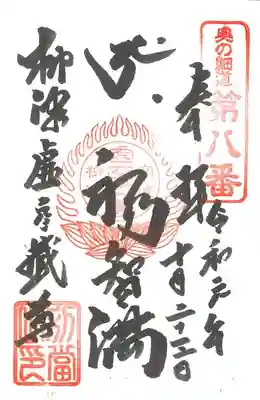 奥の細道
第八番
奉拝
令和元年
十月二十二日
福智満
柳津虚空蔵尊